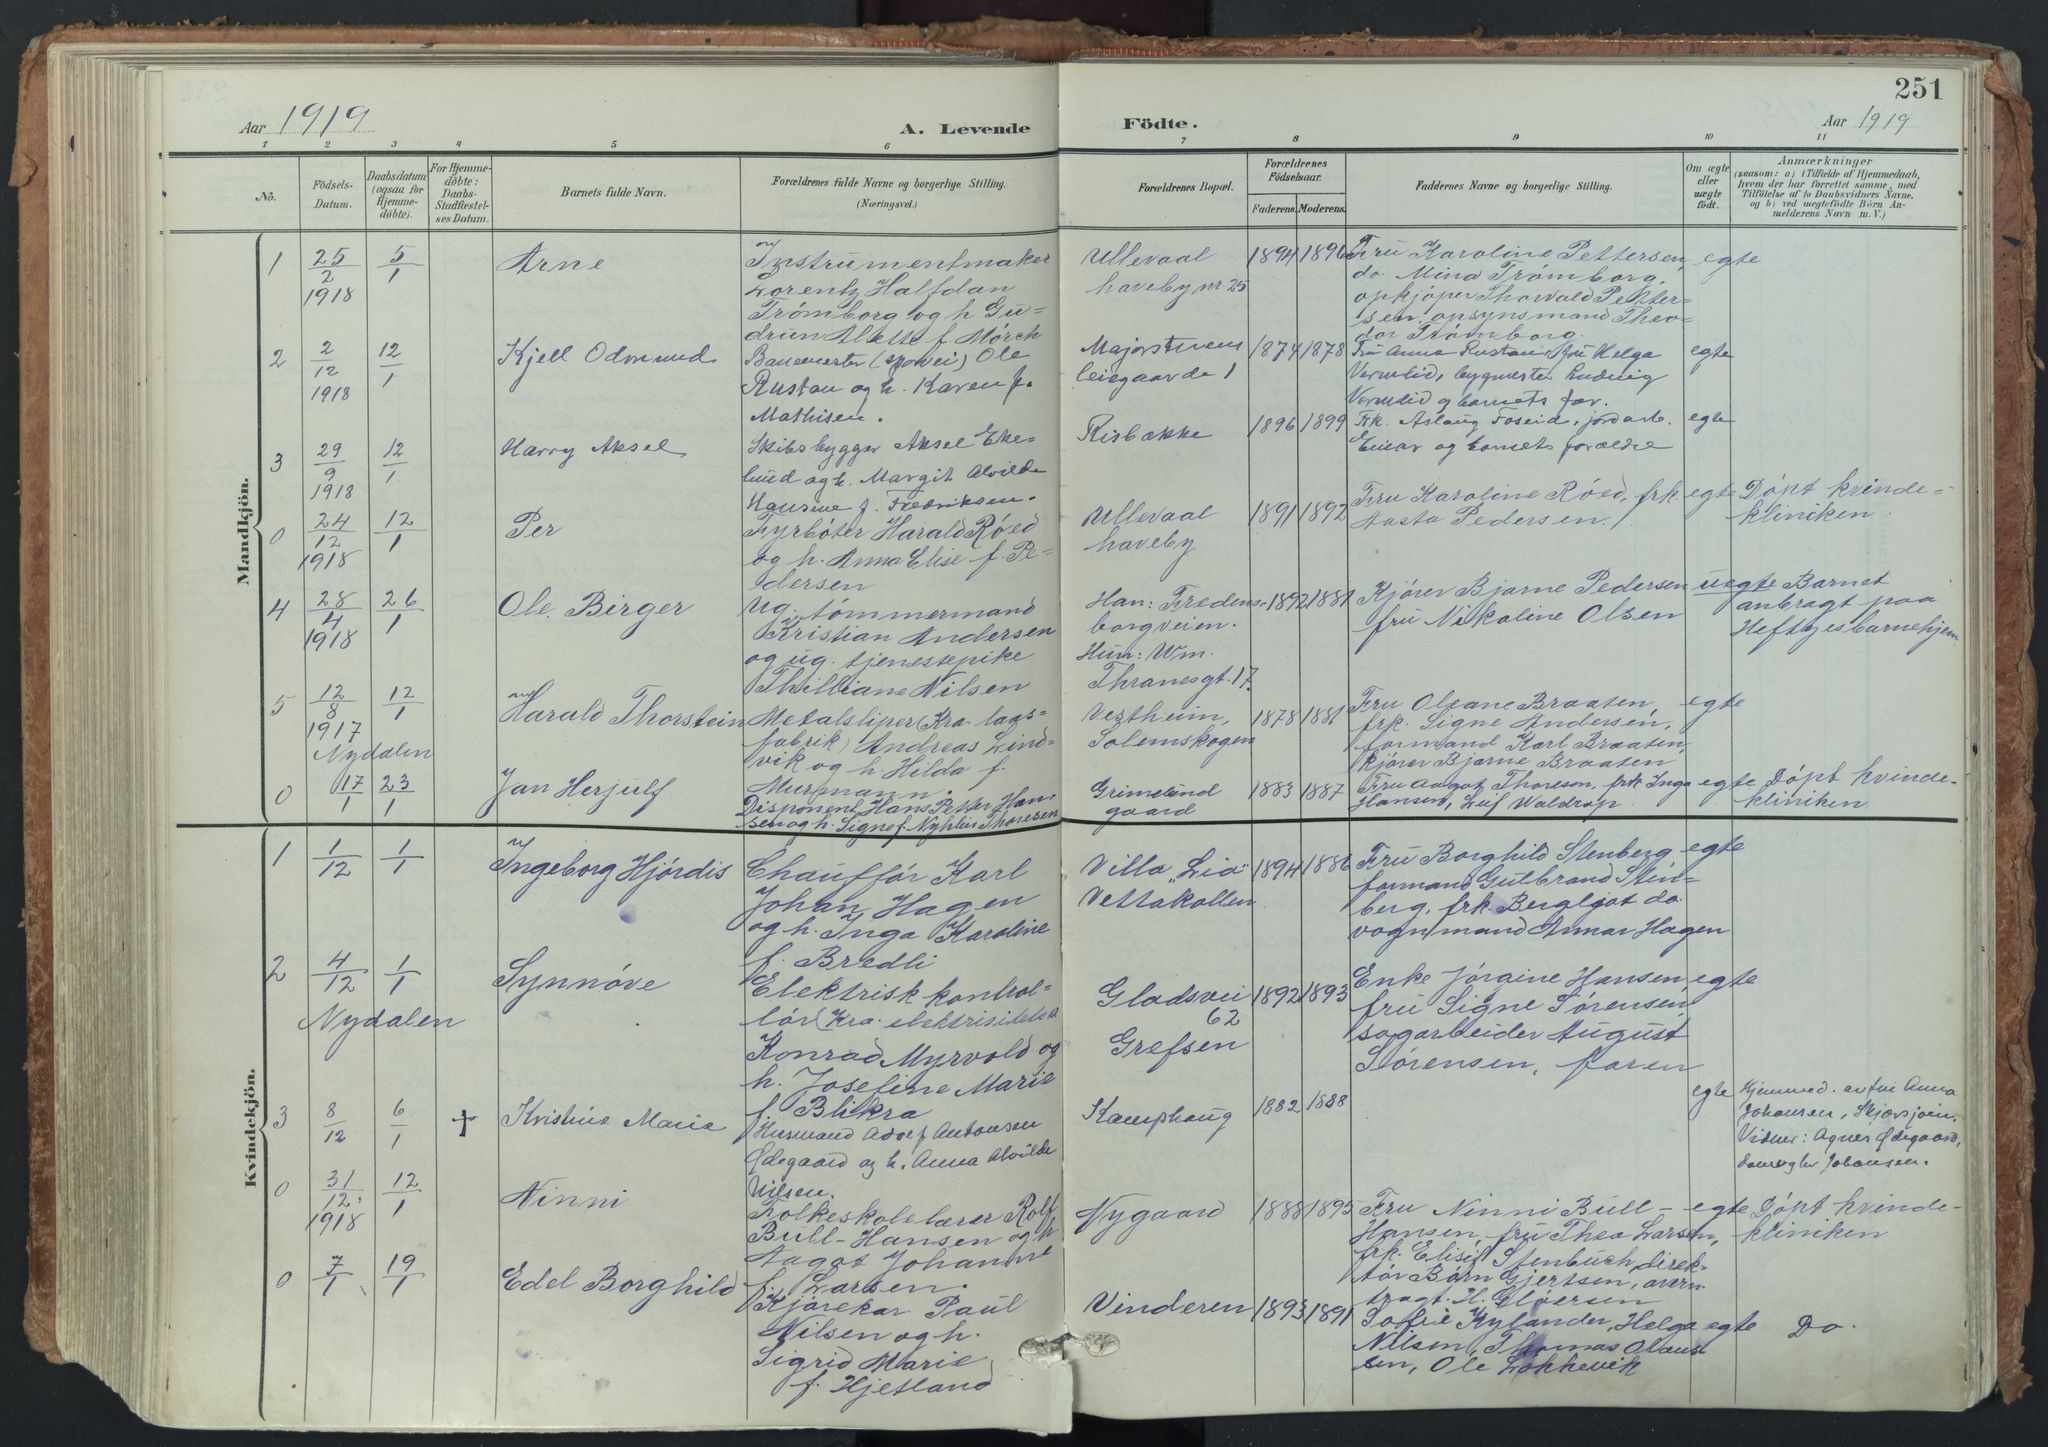 251
Aar 1919
A. Levende
Födte.
Aar 1919
1 2 3 4 5 6 7 8 9 10 11
No.
Födsels-
Datum.
Daabsdatum
(ogsaa for
Hjemme-
döbte).
For Hjemme-
döbte:
Daabs-
Stadfæstel-
ses Datum.
Barnets fulde Navn.
Forældrenes fulde Navne og borgerlige Stilling.
(Næringsvei.)
Forældrenes Bopæl.
Forældrenes
Födselsaar.
Faderens. Moderens.
Faddernes Navne og borgerlige Stilling.
Om ægte
eller
uægte
födt.
Anmærkninger
(saasom: a) i Tilfælde af Hjemmedaab,
hvem der har forrettet samme, med
Tilföielse af to Daabsvidners Navne,
og b) ved uegtefödte Börn An-
melderens Navn m. V.)
Mandkjön.
1 25/2 1918 5/1
Arne
Instrumentmaker
Lorentz Halfdan
Trömborg og h. Gu-
drun Alette f. Mörch
Ullevaal
haveby nr. 25
1894 1896
Fru Karoline Pettersen,
do. Mina Trömborg,
opkjöper Thorvald Petter-
sen, opsynsmand Theo-
dor Trömborg.
egte
2 2/12 1918 12/1
Kjell Odmund
Banemester (sporvei) Ole
Rustan og h. Karen f.
Mathisen.
Majorstuen
leiegaarde 1
1874 1878
Fru Anna Rustan, fru Helga
Vermelid, bygmester Ludvig
Vermelid og barnets far.
egte
3 29/9 1918 12/1
Harry Aksel
Skibsbygger Aksel Eke-
lund og h. Margit Alvilde
Hansine f. Fredriksen.
Risbække
1896 1899
Frk. Aslaug Foseid, jordarb.
Einar og barnets forældre
egte
0 24/12 1918 12/1
Per
Fyrböter Harald Röed
og h. Anna Elise f. Pe-
dersen
Ullevaal
haveby
1891 1892
Fru Karoline Röed, frk.
Aasta Pedersen.
egte
Döpt kvinde-
kliniken.
4 28/4 1918 26/1
Ole Birger
Ug. tömmermand
Kristian Andersen
og ug. tjenestepike
Thilliane Nilsen
Han: Fredens-
borgveien.
Hun: Wm.
Thranesgt. 17.
1892 1881
Kjörer Bjarne Pedersen
fru Nikoline Olsen
uegte
Barnet
anbragt paa
Heftyes barnehjem
5 12/8 1917 12/1
Nydalen
Harald Thorstein
Metalsliper (Kra. laas-
fabrik) Andreas Lind-
vik og h. Hilda f.
Murmann.
Vestheim,
Solemskogen
1878 1881
Fru Oleane Braaten,
frk. Signe Andersen,
formand Karl Braaten,
kjörer Bjarne Braaten
egte
0 17/1 23/1
Jan Herjulf
Disponent Hans Petter Han-
sen og h. Signe f. Nyhlén Thoresen
Grimelund
gaard
1883 1887
Fru Aagot Thoresen, frk. Inga
Hansen, Leif Waldrop.
egte
Döpt kvinde-
kliniken
Kvindekjön.
1 1/12 1/1
Ingeborg Hjördis
Chaufför Karl
Johan Hagen
og h. Inga Karoline
f. Bredli
Villa "Lia"
Vettakollen
1894 1886
Fru Borghild Stenberg
formand Gulbrand Sten-
berg, frk. Bergljot do.
vognmand Annar Hagen
egte
2 4/12 1/1
Nydalen
Synnöve
Elektrisk kontrol-
lör (Kra. elektrisitetsv.
Konrad Myrvold og
h. Josefine Marie
f. Blikra
Gladsvei
62
Grefsen
1892 1893
Enke Jörgine Hansen,
fru Signe Sörensen,
sagarbeider August
Sörensen, faren
egte
3 8/12 6/1 †
Kristine Marie
Husmand Adolf Antonsen
Ødegaard og h. Anna Alvilde
Nilsen.
Kamphaug
1882 1888
egte
Hjemmed. av fru Anna
Johansen, Skjærsjöen.
Vidner: Agnes Ødegaard,
Johansen.
0 31/12 1918 12/1
Ninni
Folkeskolelærer Rolf
Bull-Hansen og h.
Aagot Johanne
f. Larsen.
Nygaard
1888 1895
Fru Ninni Bull-
Hansen, fru Thea Larsen,
frk. Elisif Stenbuch, direk-
tör Börn Gjertsen, overr-
.sagf. H. Glöersen
egte
Döpt kvinde-
kliniken
0 7/1 19/1
Edel Borghild
Kjörekar Paul
Nilsen og h.
Sigrid Marie
f. Hjetland
Vinderen
1893 1891
Sofie Kylander, Helga
Nilsen, Thomas Olaus-
sen, Ole Løkkevik
egte
Do.